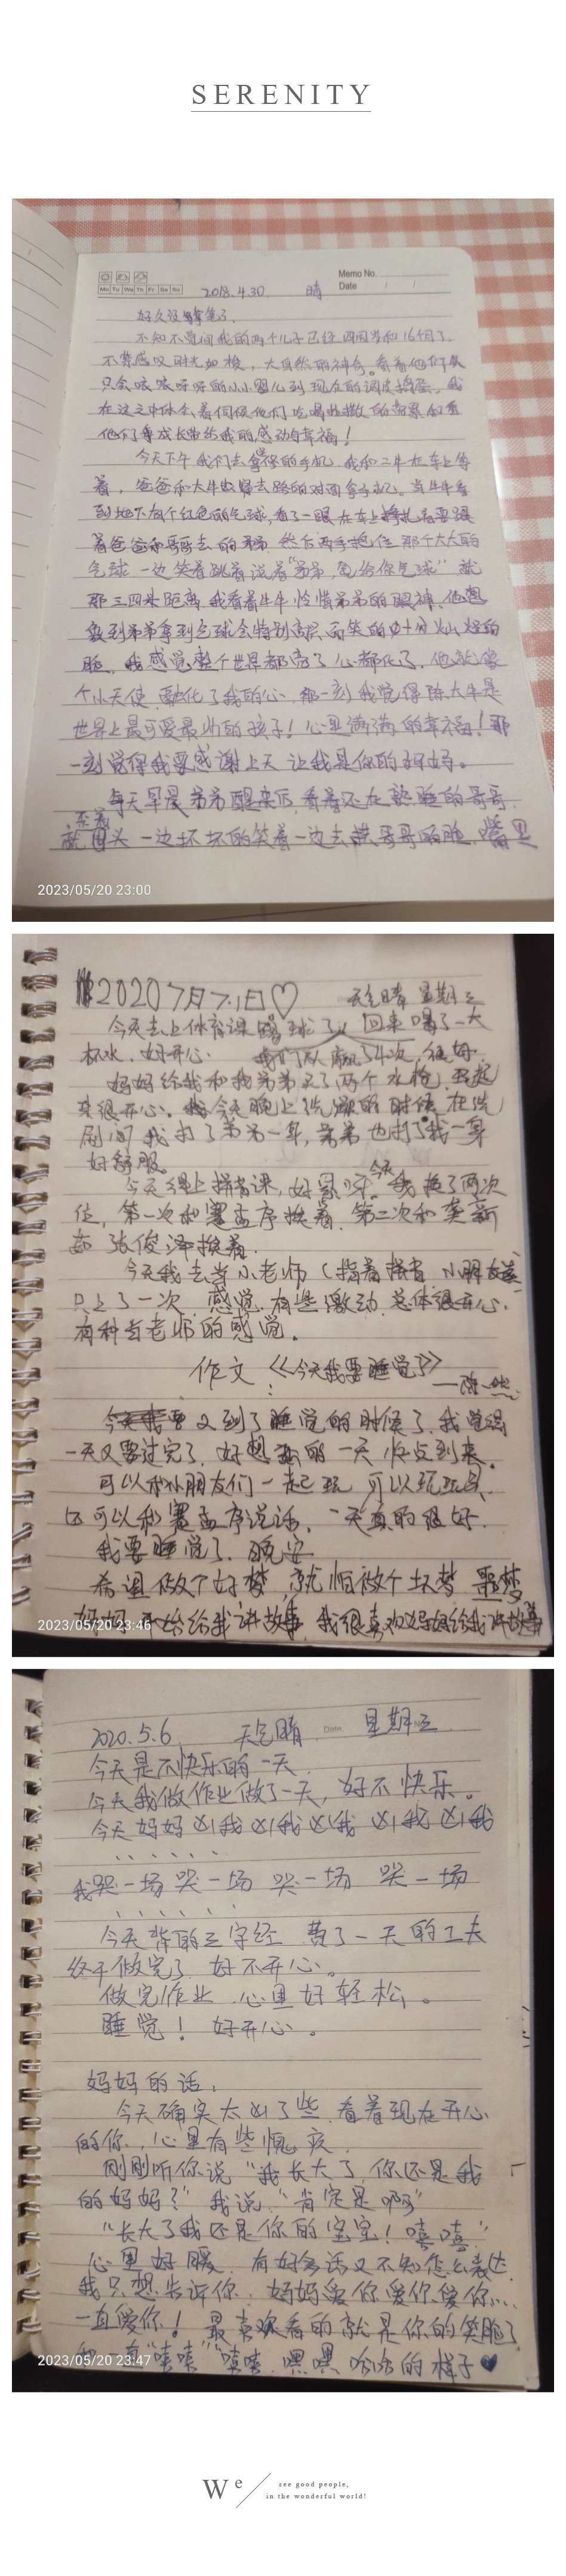 SERENITY
Memo No.
Mo Tu We Th Fr Sa Su
Date / /
2018.4.30. 晴
好久没拿笔了,
不知不觉间我的两个儿子已经四周岁和16个月了,
不禁感叹时光如梭,大自然的神奇。看着他们从
只会咳咳呀呀的小小婴儿到现在的调皮捣蛋。我
在这之中体会着伺候他们吃喝拉撒的
他们成长带给我的感动与幸福!
今天下午我们去拿修的手机,我和二牛在车上等
着,爸爸和大牛去路的对面拿手机。当牛牛看
到地下有个红色的气球,看了一眼在车上挣扎着要跟
着爸爸和哥哥去的弟弟,然后两手抱住那个大大的
气球一边笑着跳着说着“弟弟,龟给你气球”就
那三四米距离,我看着牛牛怜惜弟弟的眼神,他想
象到弟弟拿到气球会特别高兴而笑的十分灿烂的
脸,我感觉整个世界都亮了心都化了,他就像
个小天使,融化了我的心,那一刻我觉得陈大牛是
世界上最可爱最帅的孩子!心里满满的幸福!那
一刻觉得我要感谢上天让我是你的妈妈。
每天早晨弟弟醒来后,看着还在熟睡的哥哥,
歪着
就头一边坏坏的笑着一边去哥哥的脸,嘴里
2023/05/20 23:00
2020 7月7.1日♡ 天气晴 星期三
今天去上体育课踢球了,回来喝了一大
杯水,好开心 我们队赢了4次,很好.
妈妈给我和我弟弟买了两个水枪,玩起
来很开心。我今天晚上洗澡的时候在洗
刷间我打了弟弟一身,弟弟也打了我一身
好舒服
今天
今天线上拼音课,好累呀。我换了两次
位,第一次和蹇孟序挨着,第二次和龚新
茹 张俊泽挨着.
今天我去当小老师(指着拼音,小朋友读
只上了一次,感觉,有些激动 总体很开心.
有种当老师的感觉。
作文《今天我要睡觉了》
今天我要又到了睡觉的时候了,我觉得
一天又要过完了,好想新的一天快点到来
可以和小朋友们一起玩 可以玩玩具
还可以和蹇孟序说话,一天真的很好.
我要睡觉了.晚安
希望做个好梦 就怕被个坏梦 噩梦
妈妈开始给我讲故事,我很喜欢妈妈给我讲故事
2023/05/20 23:46
2020.5.6. 天气晴 Date. 星期三
今天是不快乐的一天.
今天我做作业做了一天,好不快乐。
今天妈妈凶我凶我凶我凶我凶我
......
我哭一场哭一场 哭一场 哭一场
......
今天背的三字经 费了一天的工夫
终于做完了 好不开心。
做完作业 心里好轻松。
睡觉!好开心。
妈妈的话:
今天确实太凶了些,看着现在开心
的你,心里有些愧疚.
刚刚听你说“我长大了,你还是我
的妈妈?”我说:“肯定是啊”
“长大了我还是你的宝宝!嘻嘻”
心里好暖,有好多话又不知怎么表达
我只想告诉你,妈妈爱你爱你爱你...
一直爱你!最喜欢看的就是你的笑脸了
和一直“嘻嘻”“嘻嘻,嘿嘿 哈哈的样子♥
2023/05/20 23:47
We
see good people,
in the wonderful world!